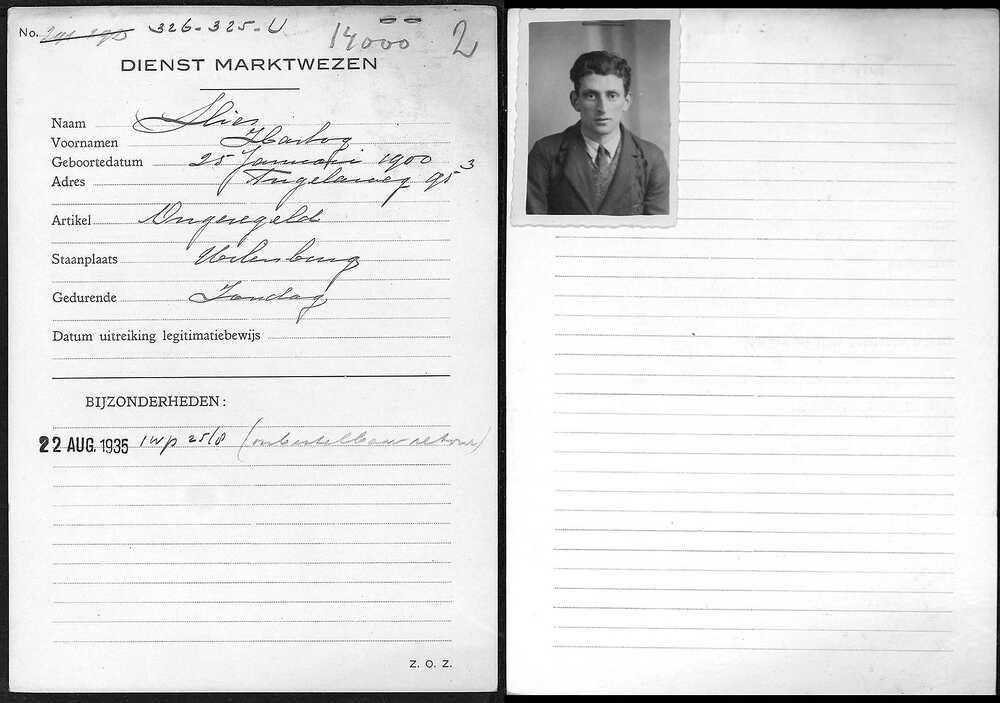 No. 326-325-U 14000 2
DIENST MARKTWEZEN
Naam Slier
Voornamen Hartog
Geboortedatum 25 Januari 1900
Adres 95³
Artikel Ongeregeld
Staanplaats Uilenburg
Gedurende Zondag
Datum uitreiking legitimatiebewijs
BIJZONDERHEDEN:
22 AUG. 1935 1wp 25/8 (onbestelbaar retour)
Z. O. Z.